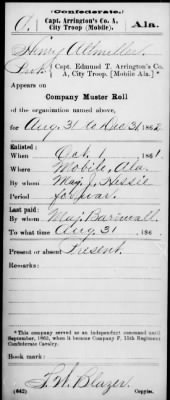 (Confederate.)
A. Capt. Arrington's Co. A, Ala.
City Troop (Mobile),
Henry Altmeller
Pvt. { Capt. Edmund T. Arrington's Co.
A, City Troop. [Mobile Ala.]
Appears on
Company Muster Roll
of the organization named above,
for Aug. 31 to Dec 31, 1862
Enlisted:
When Oct. 1, 1861.
Where Mobile, Ala.
By whom Maj. J. Hessie
Period for war.
Last paid:
By whom Maj. Barnwall
To what time Aug. 31, 186
Present or absent Present.
Remarks:
*This company served as an independent command until
September, 1863, when it became Company F, 15th Regiment
Confederate Cavalry.
Book mark:
Copyist.
(642)